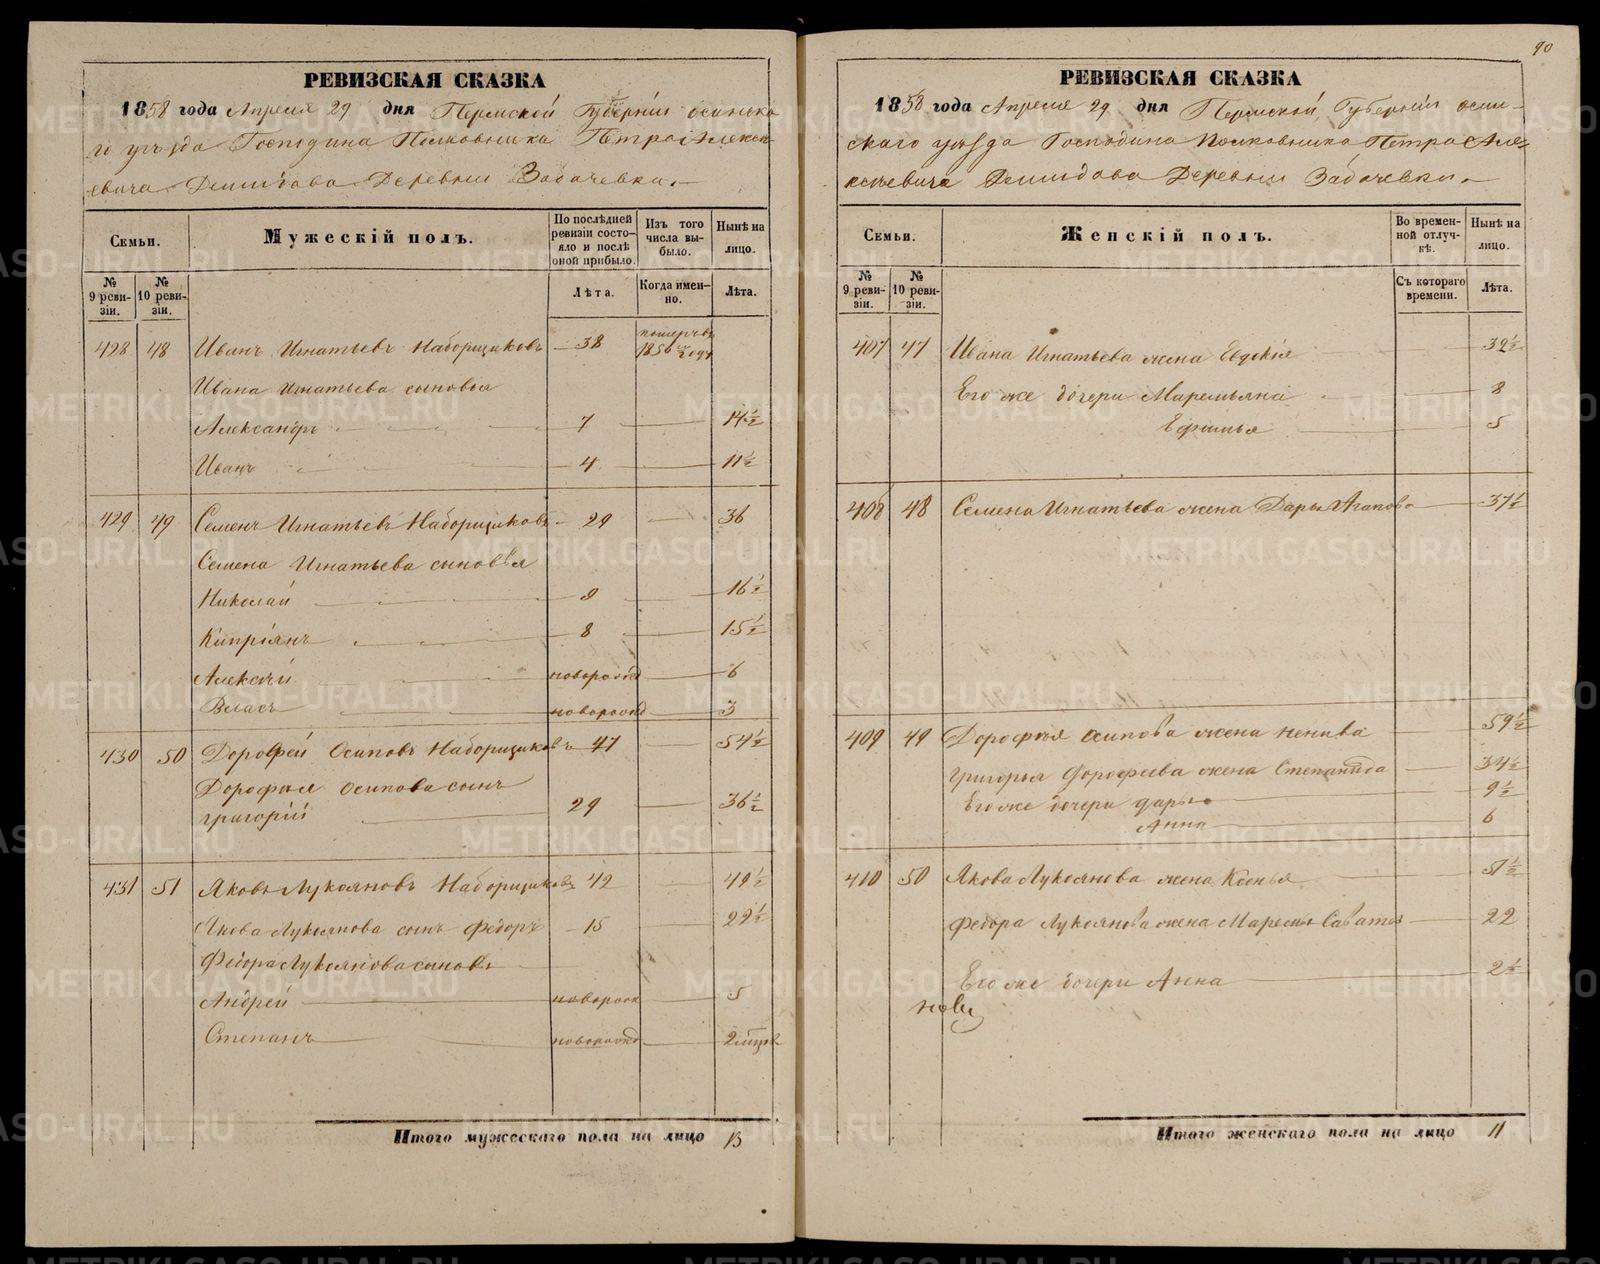 90
РЕВИЗСКАЯ СКАЗКА
1858 года Апреля 29 дня Пермской Губерніи осинска
го уѣзда Господина Полковника Петра Алекс
ѣевича Демидова Деревни Забачевки.
Семьи.
Мужескій полъ.
По послѣдней ревизіи состояло и послѣ оной прибыло.
Изъ того числа выбыло.
Нынѣ на лицо.
№ 9 ревизіи.
№ 10 ревизіи.
Лѣта.
Когда именно.
Лѣта.
428 48 Иванъ Игнатьевъ Наборщиковъ 38 померъ въ 1856 году
Ивана Игнатьева сыновья
Александръ 7 14½
Иванъ 4 11½
429 49 Семенъ Игнатьевъ Наборщиковъ 29 36
Семена Игнатьева сыновья
Николай 9 16½
Кипріянъ 8 15½
Алексѣй новорожд 6
Власъ новорожд 3
430 50 Дорофей Осиповъ Наборщиковъ 47 54½
Дорофея Осипова сынъ
Григорій 29 36½
431 51 Яковъ Лукояновъ Наборщиковъ 42 49½
Якова Лукоянова сынъ Федоръ 15 22½
Федора Лукоянова сыновья
Андрей новорожд 5
Степанъ новорожд 2 мѣсяц
Итого мужескаго пола на лицо 13
РЕВИЗСКАЯ СКАЗКА
1858 года Апреля 29 дня Пермской Губерніи осин-
скаго уѣзда Господина Полковника Петра Але-
ксѣевича Демидова Деревни Забачевки.
Семьи.
Женскій полъ.
Во временной отлучкѣ.
Нынѣ на лицо.
№ 9 ревизіи.
№ 10 ревизіи.
Съ котораго времени.
Лѣта.
407 47 Ивана Игнатьева жена Евдокія 39½
Его же дочери Маремьяна 8
Ефимья 5
408 48 Семена Игнатьева жена Дарья Агапова 37½
409 49 Дорофея Осипова жена Ненила 59½
Григорья Дорофеева жена Степанида 34½
Его же дочери Дарья 9½
Анна 6
410 50 Якова Лукоянова жена Ксенья 51½
Федора Лукоянова жена Маремья 22
Его же дочери Анна 2½
Итого женскаго пола на лицо 11
METRIKI.GASO-URAL.RU